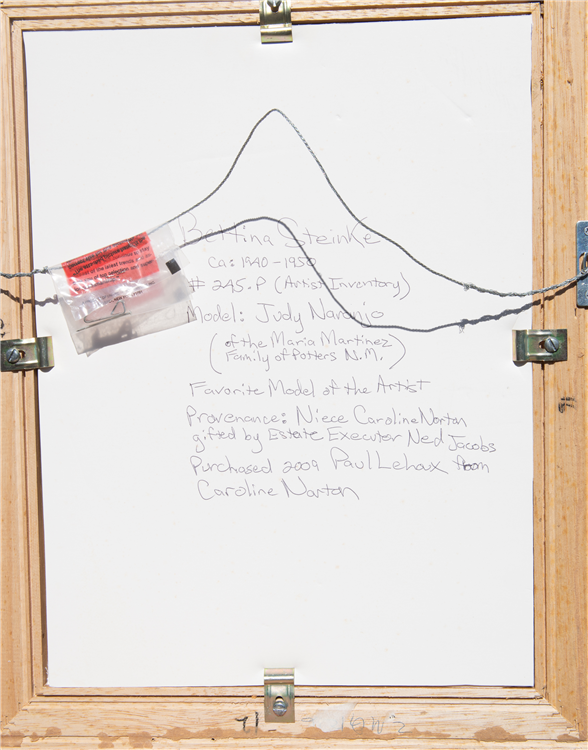 Bettina Steinke
Ca: 1940-1950
# 245.P (Artist Inventory)
Model: Judy Naranjo
(of the Maria Martinez
Family of Potters N.M.)
Favorite Model of the Artist
Provenance: Niece Caroline Norton
gifted by Estate Executor Ned Jacobs
Purchased 2009 Paul Lehaux from
Caroline Norton